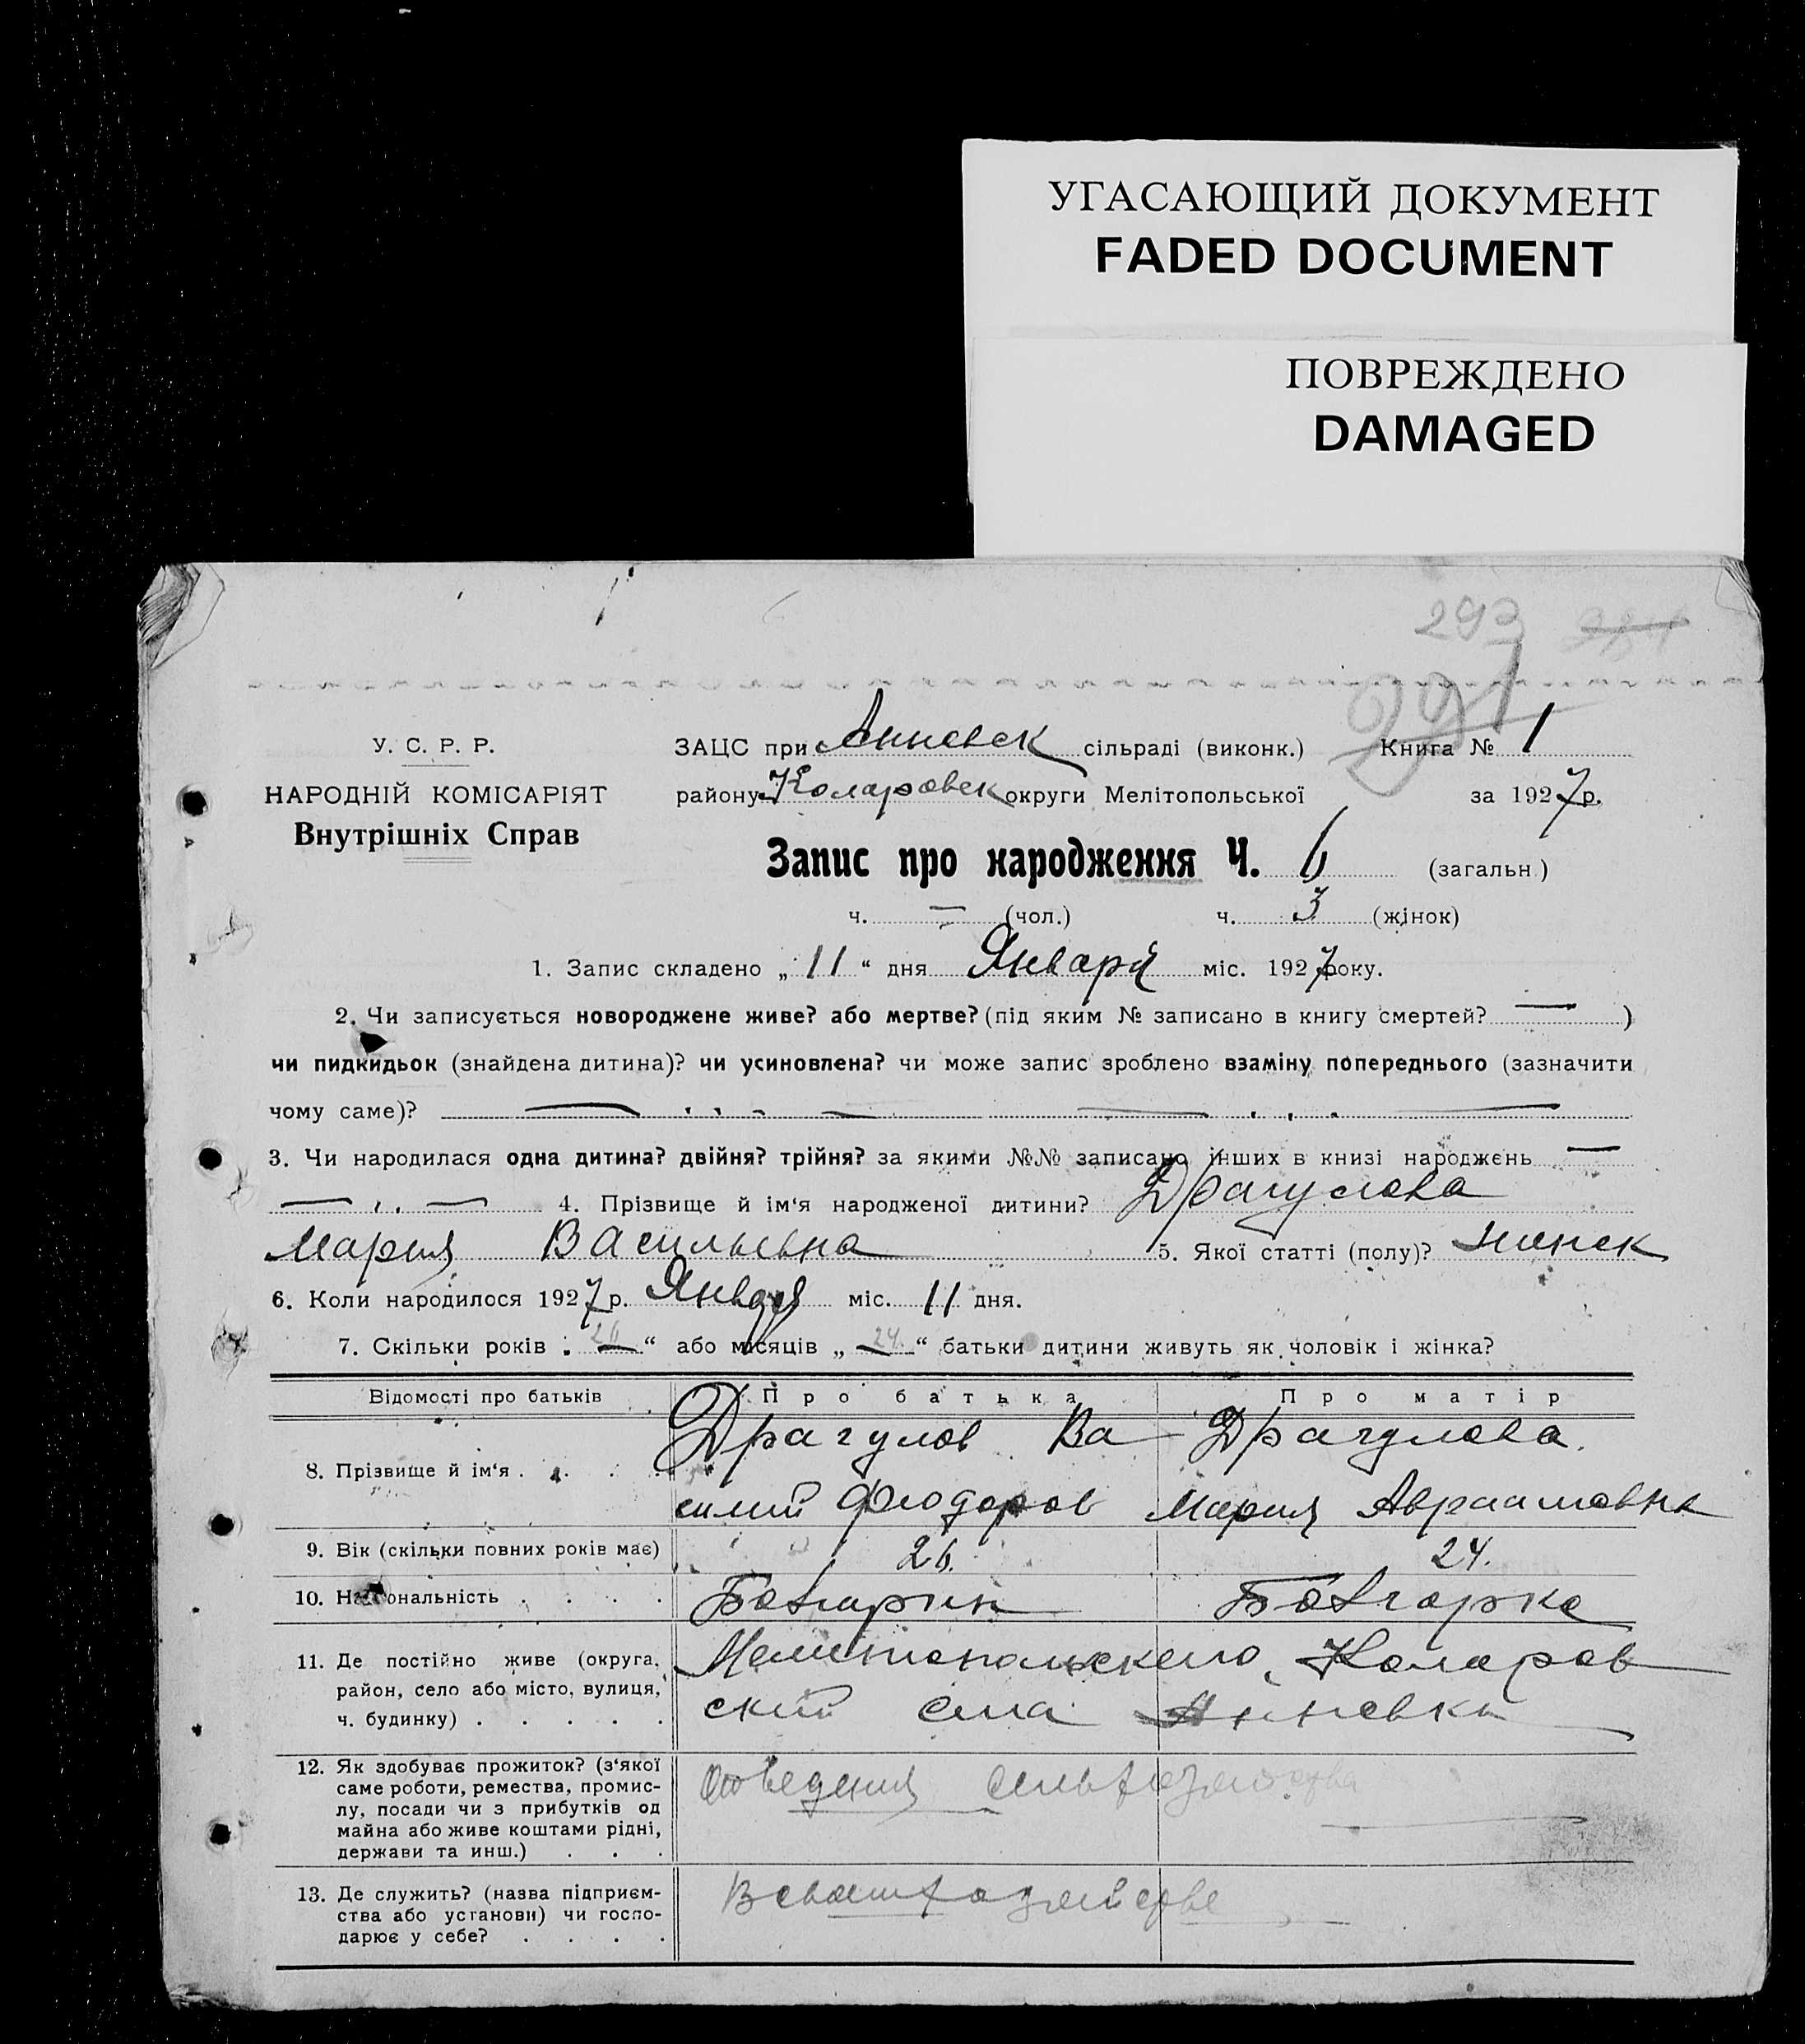 УГАСАЮЩИЙ ДОКУМЕНТ
FADED DOCUMENT
ПОВРЕЖДЕНО
DAMAGED
293
291
У. С. Р. Р.
НАРОДНІЙ КОМІСАРІЯТ
Внутрішніх Справ
ЗАЦС при Анневск сільраді (виконк.) Книга № 1
району Коларовск округи Мелітопольської за 1927 р.
Запис про народження Ч. 6 (загальн.)
ч. — (чол.) ч. 3 (жінок)
1. Запис складено „11“ дня Января міс. 1927 року.
2. Чи записується новороджене живе? або мертве? (під яким № записано в книгу смертей? — )
чи пидкидьок (знайдена дитина)? чи усиновлена? чи може запис зроблено взаміну попереднього (зазначити
чому саме)? —
3. Чи народилася одна дитина? двійня? трійня? за якими №№ записано інших в книзі народжень —
— „ — 4. Прізвище й ім‘я народженої дитини? Драгулова
Мария Васильевна 5. Якої статті (полу)? женск
6. Коли народилося 1927 р. Января міс. 11 дня.
7. Скільки років „26“ або місяців „24“ батьки дитини живуть як чоловік і жінка?
Відомості про батьків Про батька Про матір
8. Прізвище й ім‘я . . . . Драгулов Ва Драгулова
силий Фіодоров Мария Авраамовна
9. Вік (скільки повних років має) 26. 24.
10. Національність . . . . Болгарин Болгарка
11. Де постійно живе (округа, район, село або місто, вулиця, ч. будинку) . . . . . Мелитопольского, Коларов
ский села Анневки
12. Як здобуває прожиток? (з‘якої саме роботи, ремества, промислу, посади чи з прибутків од майна або живе коштами рідні, держави та инш.) . . . От ведения сельхозяйства
13. Де служить? (назва підприємства або установи) чи господарює у себе? . . . . В своем хозяйстве